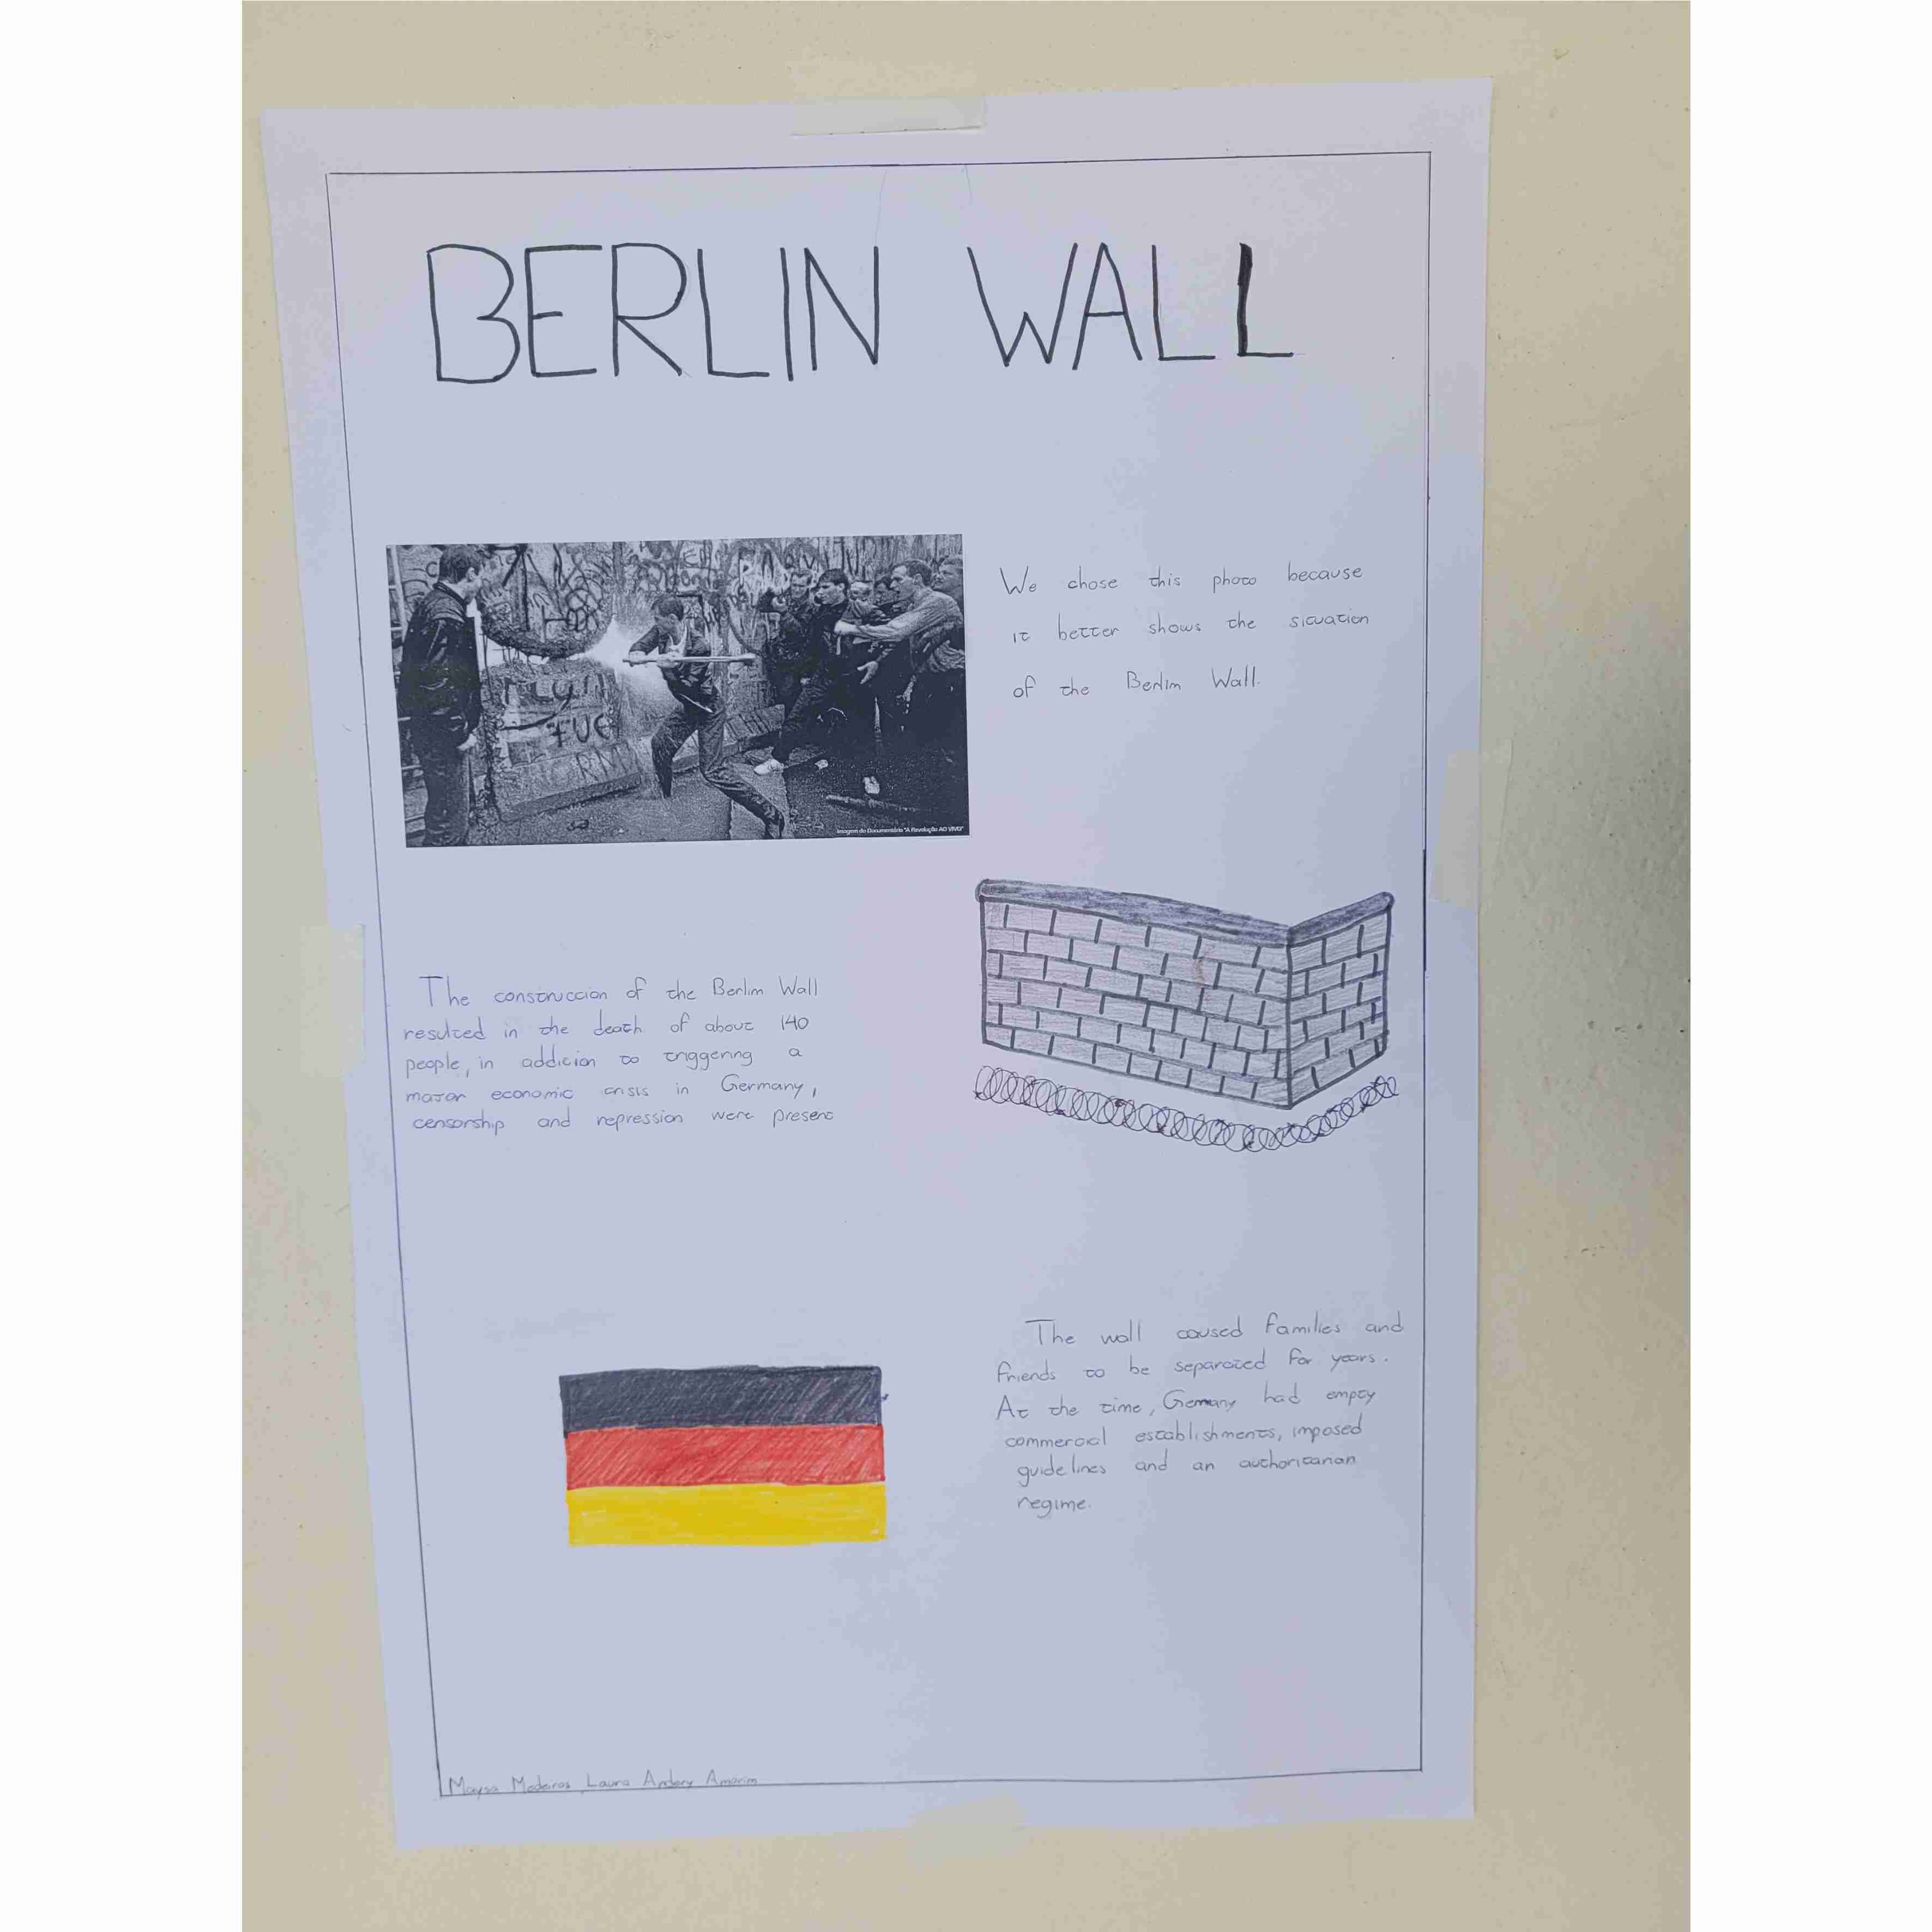 BERLIN WALL
We chose this photo because
it better shows the situation
of the Berlim Wall.
Imagem do Documentário "A Revolução AO VIVO"
The construction of the Berlim Wall
resulted in the death of about 140
people, in addition to triggering a
major economic crisis in Germany,
censorship and repression were present
The wall caused families and
friends to be separated for years.
At the time, Gemany had empty
commercial establishments, imposed
guidelines and an authoritarian
regime.
Maysa Medeiros, Laura Andery Amorim